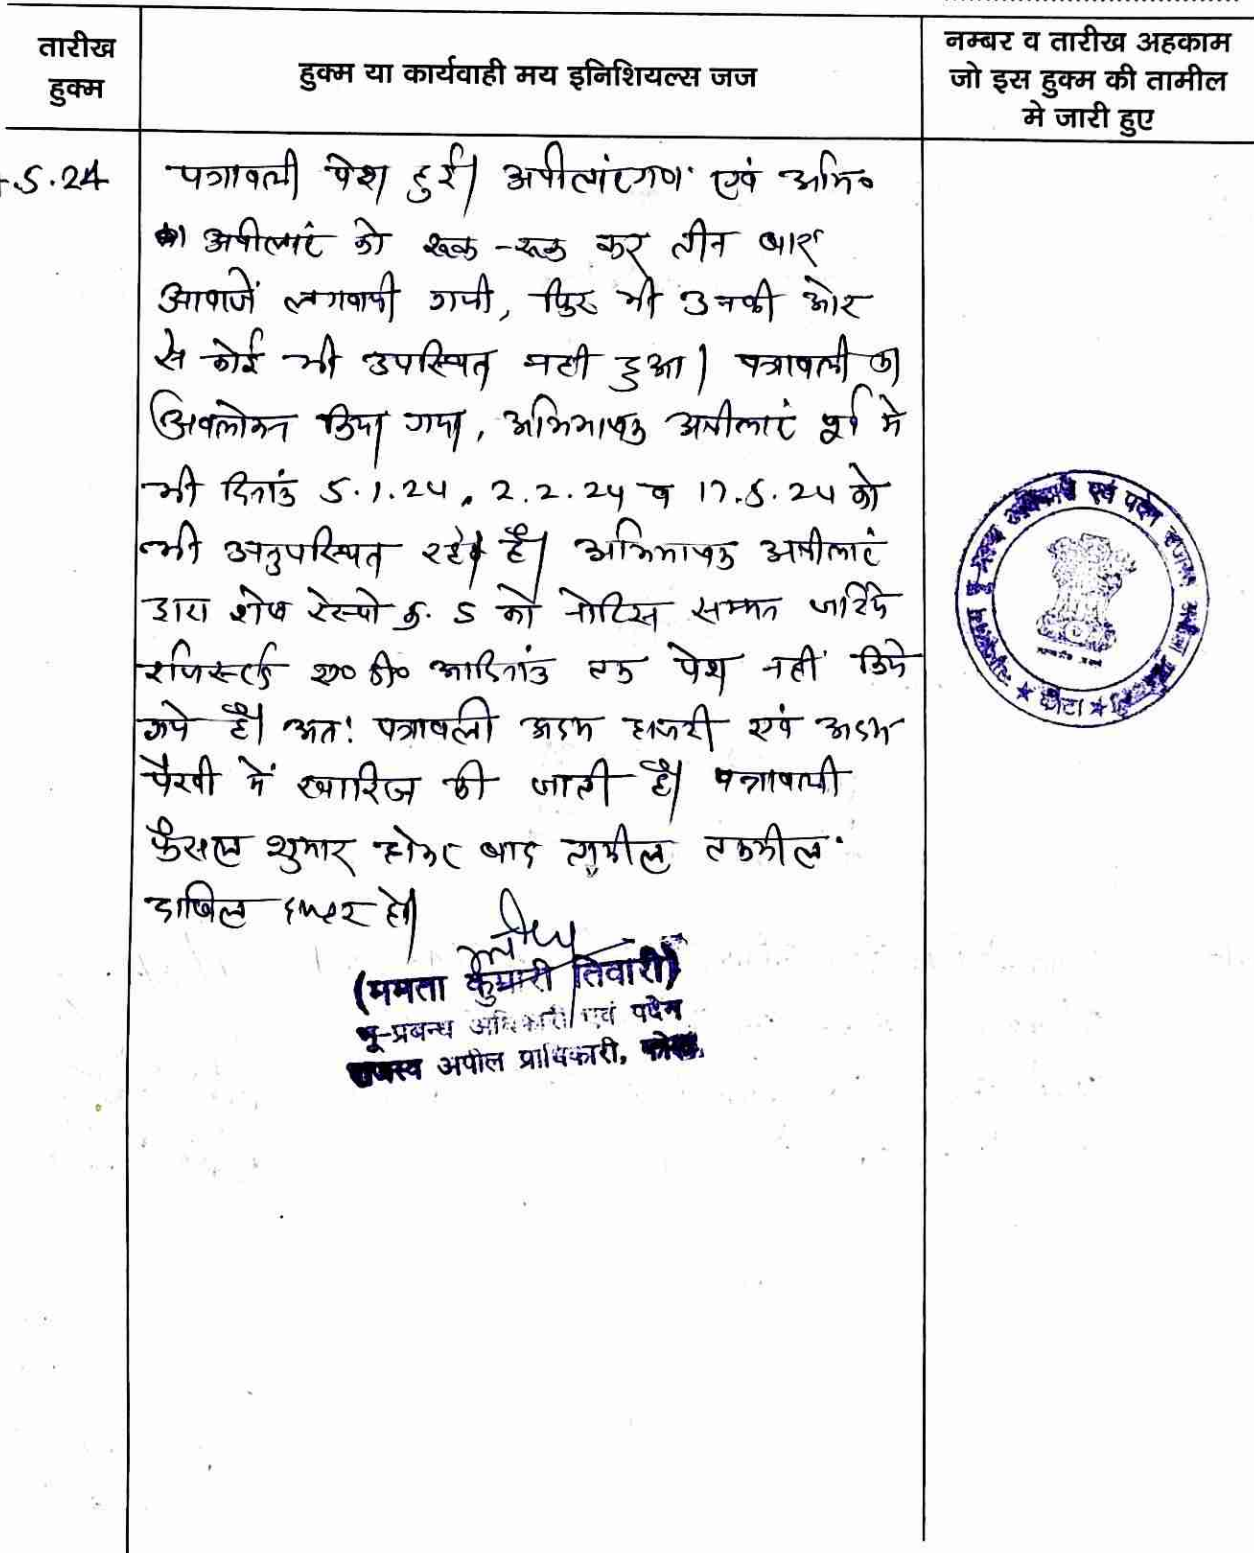 तारीख
हुक्म
हुक्म या कार्यवाही मय इनिशियल्स जज
नम्बर व तारीख अहकाम
जो इस हुक्म की तामील
मे जारी हुए
.5.24
पत्रावली पेश हुई। अपीलांटगण एवं अभि०
अपीलांट को रूक-रूक कर तीन बार
आवाजें लगवायी गयी, फिर भी उनकी ओर
से कोई भी उपस्थित नही हुआ। पत्रावली का
अवलोकन किया गया, अभिभाषक अपीलांट पूर्व मे
भी दिनांक 5.1.24, 2.2.24 व 17.5.24 को
भी अनुपस्थित रहे है। अभिभाषक अपीलांट
द्वारा शेष रेस्पो क्र. 5 को नोटिस सम्मन जरिये
रजिस्टर्ड ए० डी० आदिनांक तक पेश नही किये
गये है। अतः पत्रावली अदम हाजरी एवं अदम
पैरवी में खारिज की जाती है। पत्रावली
फैसल शुमार होकर बाद तामील तकमील
दाखिल दफ्तर हो।
(ममता कुमारी तिवारी)
भू-प्रबन्ध अधिकारी एवं पदेन
राजस्व अपील प्राधिकारी,
अधिकारी एवं पदेन राजस्व अपील
कोटा